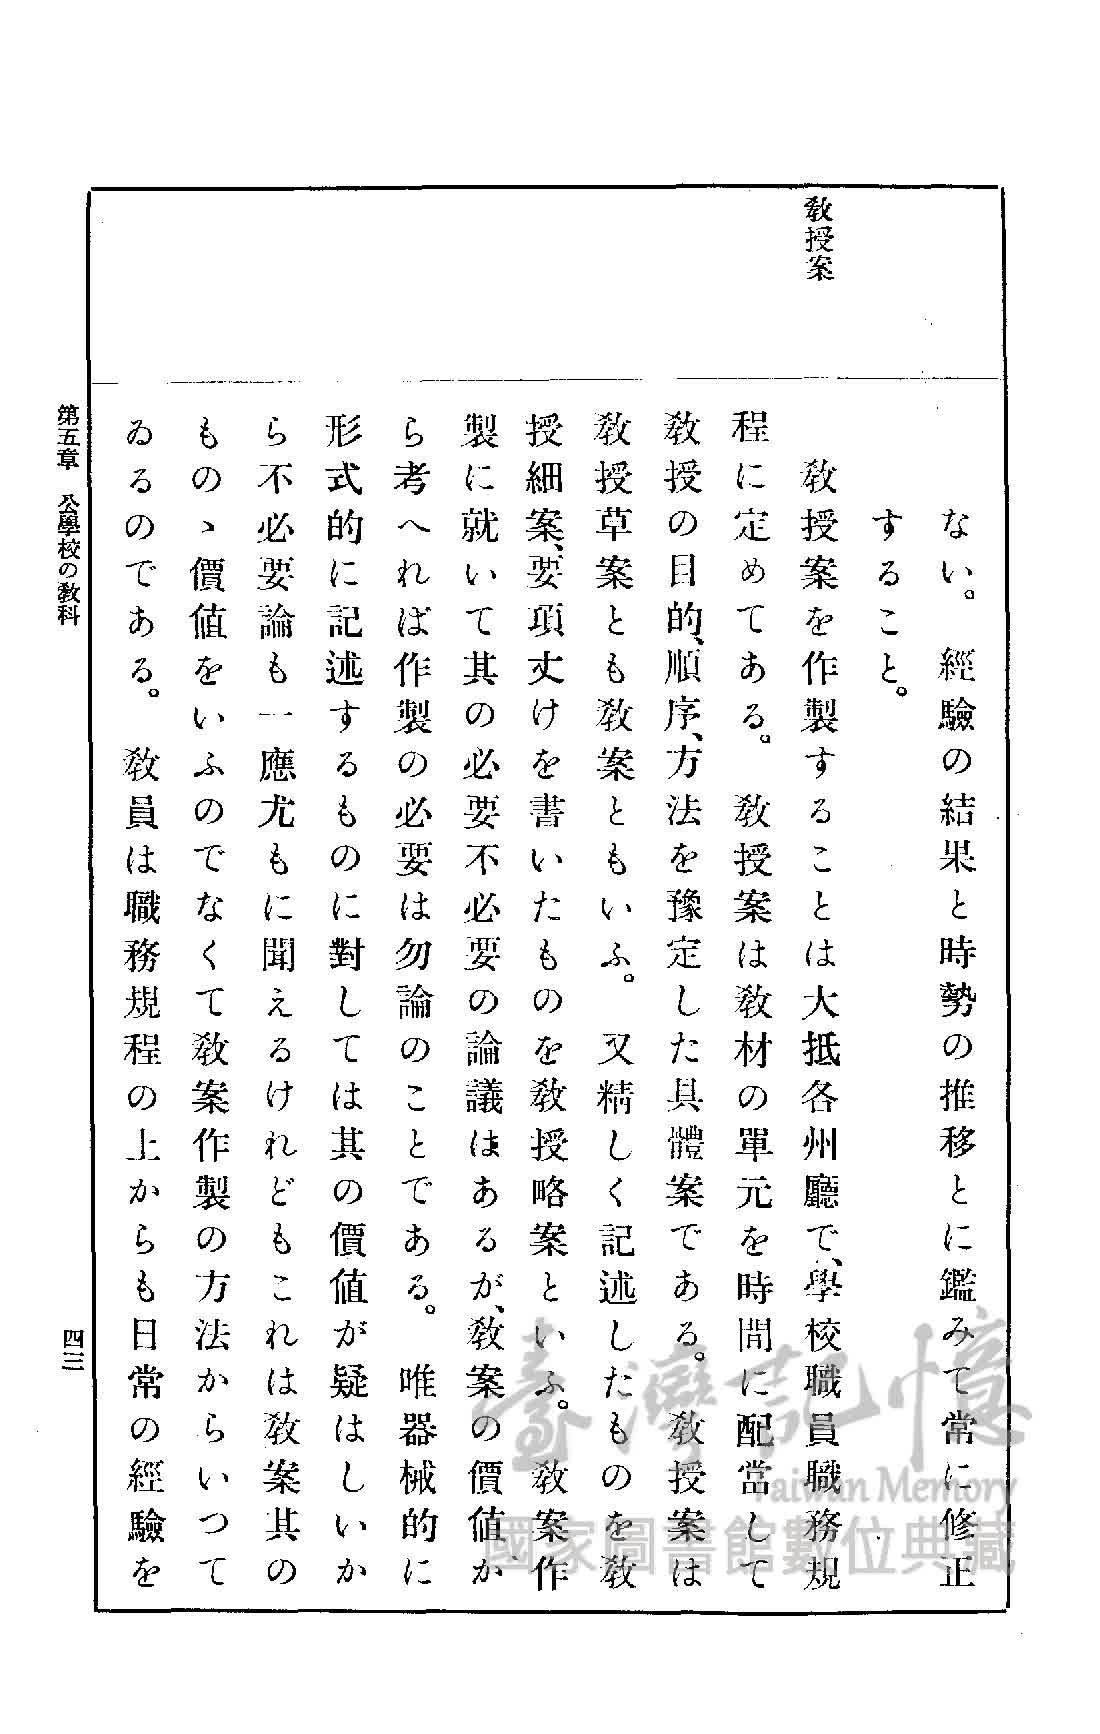 教授案
ない。經驗の結果と時勢の推移とに鑑みて常に修正
すること。
教授案を作製することは大抵各州廳で、學校職員職務規
程に定めてある。教授案は教材の單元を時間に配當して
教授の目的、順序、方法を豫定した具體案である。教授案は
教授草案とも教案ともいふ。又精しく記述したものを教
授細案、要項丈けを書いたものを教授略案といふ。教案作
製に就いて其の必要不必要の論議はあるが、教案の價値か
ら考へれば作製の必要は勿論のことである。唯器械的に
形式的に記述するものに對しては其の價値が疑はしいか
ら不必要論も一應尤もに聞えるけれどもこれは教案其の
もの、價値をいふのでなくて教案作製の方法からいつて
ゐるのである。教員は職務規程の上からも日常の經驗を
第五章 公學校の教科
四三
臺灣記憶
Taiwan Memory
國家圖書館數位典藏